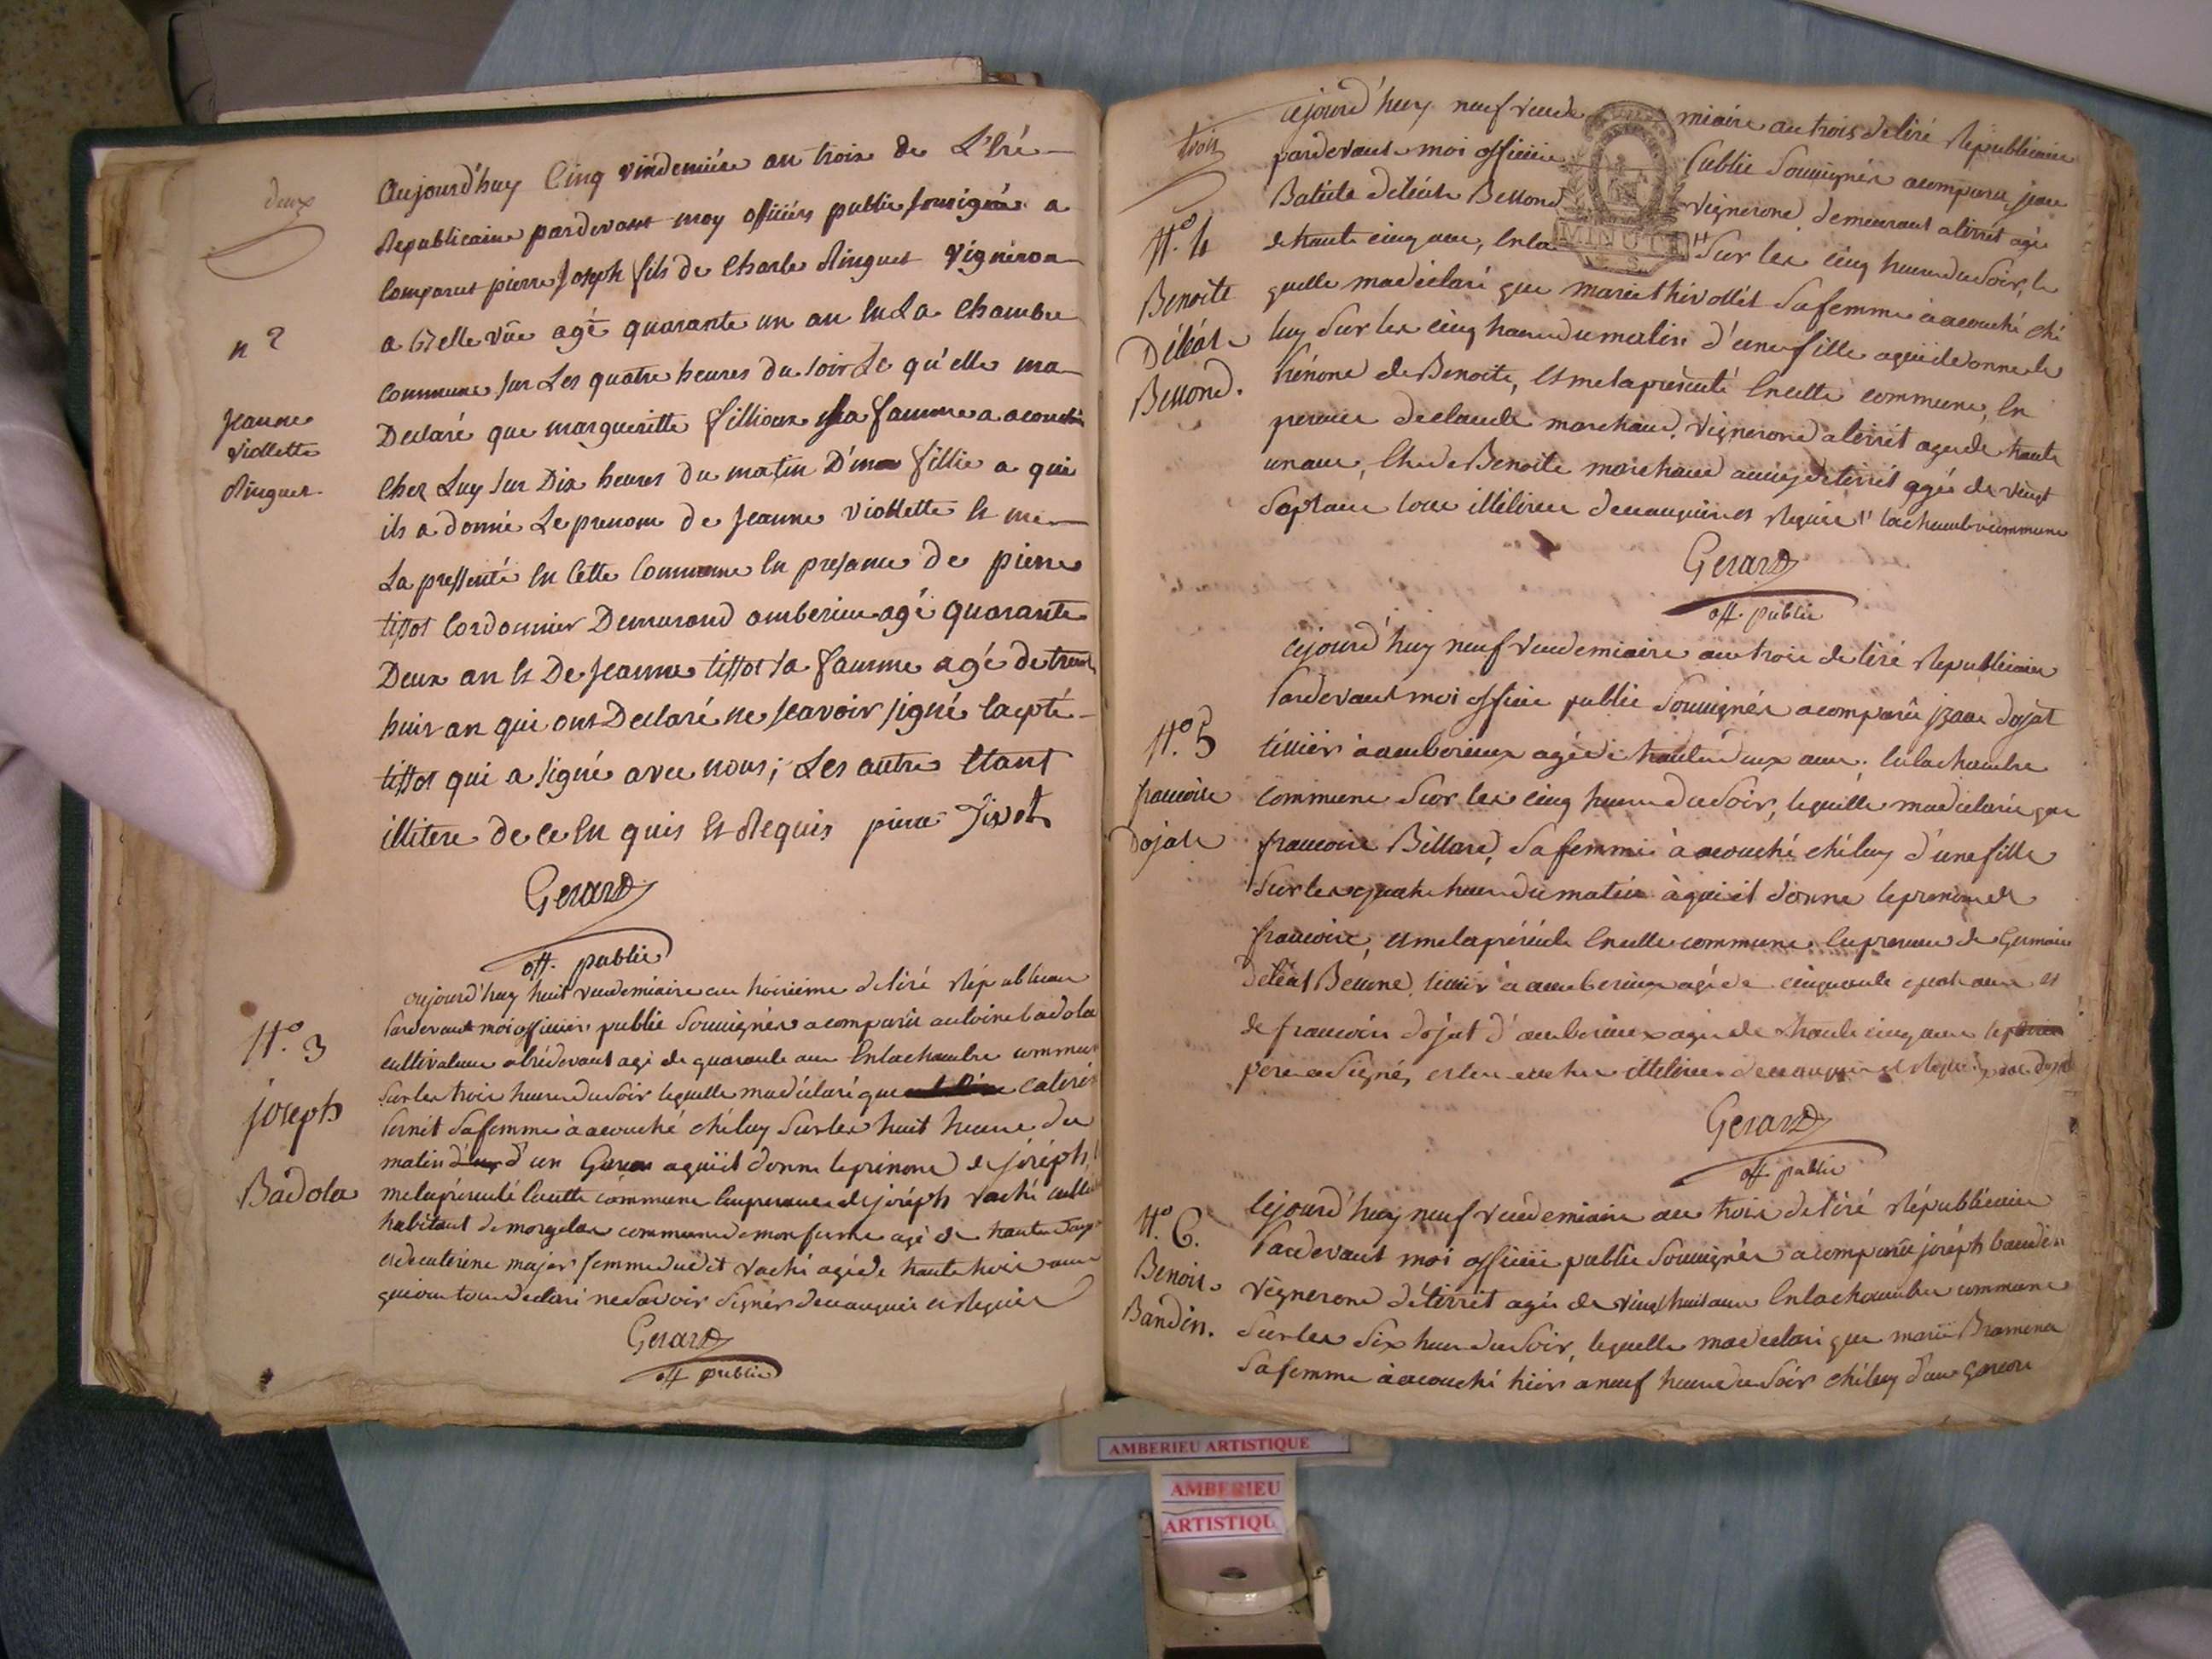 deux
Aujourd'huy Cinq vindemiére an trois de L'hré
Republicaine pardevant moy officiérs public sousigné a
Comparut pierre Joseph fils de Charle Ringuet Vigniron
a Belle vüe agé quarante un an En La Chambre
Commune sur Les quatre heures du soir Le qu'elle ma
Declaré que margueritte fillioux sa famme a acouché
Chez Luy sur Dix heures du matin D'une fillie a qui
ils a donné Le prenom de Jeanne Viollette Et me
La pressenté En Cette Commune En presance de pierre
tissot Cordonnier Demurand amberieu agé quarante
Deux an Et De Jeanne tissot sa famme agé de trente
huit an qui ont Declaré ne scavoir signé Cacepté
tissot qui a signé avec nous; Les autre Etant
illitere de ce En quis Et Requis pierre Tissot
n 2
Jeanne
Viollette
Ringuet
Gerard
off. public
N.o 3
joseph
Badola
aujourd'huy huit vendemiaire an troisieme de l'éré Républicain
Pardevant moi officier public Souvignér a comparüt antoine badola
cultivateur abrédevant agé de quarante ans En la chambre commune
Sur les trois heures du Soir lequelle ma déclaré que caterine
Sernit Sa femme à acouché ché luy Sur les huit heure du
matin d'un Garcon aqui il donne le prénom de joséph
me la présenté En cette commune En presance de joséph vaché
habitant de morgelas commune de monferme agé de trante
et de caterine major femme dudit vaché agé de trante trois ans
qui on tous declaré ne Savoir Signér de ce anquis et Requis
Gerard
off public
trois
N.o 4
Benoite
Déléat
Bellond.
Cejourd'huy neuf vende miaire an trois de l'éré Republicaine
pardevant moi officier Public Souvignér a comparu jean
Batiste déléat Bellond Vignerond demeurant a tirét agé
de trante cinq ans, En la Sur les cinq heure du Soir, le
MINUTE
quelle ma déclaré que marie thévollét Sa femme à acouché ché
luy Sur les cinq heure du matin d'une fille a qui il donne le
Prénond de Benoite, Et me la présenté En cette commune, En
presance de claude marchand, Vignerond a tirét agé de trante
un ans, Et de Benoite marchand aussy de tirét agée de vingt
Sapt ans tous illétéres de ce anquis et Requis la chambre commune
Gerard
off. public
N.o 5
francoise
Dojat
Cejourd'huy neuf vendemiaire an trois de l'éré Republicaine
Pardevant moi officier public Souvignér a comparüt izaac dojat
tissiér à amberieux agé de trante deux ans, En la chambre
commune Sur les cinq heure du Soir, lequelle ma déclaré que
francoise Billard, Sa femme à acouché ché luy d'une fille
Sur les quatre heure du matin à qui il donne le prenom de
francoise, et me la présenté En cette commune, En presance de Germain
déléat Bellond, tissiér à amberieux agé de cinquante quatre ans et
de francois dojat d'amberieux agé de trante cinq ans le
pére a Signé, et les autres illéteres de ce anquis et Requis izaac dojat
Gerard
off. public
N.o 6.
Benoit
Bandin.
Cejourd'huy neuf vendemiaire an trois de l'éré Républicaine
Pardevant moi officier public Souvignér a comparüt joséph bandin
Vignerond de tirrét agé de vingt huit ans En la chambre commune
Sur les Six heure du Soir, lequelle ma declaré que marie Bramerel
Sa femme à acouché hiér a neuf heure du Soir ché luy d'un garcon
AMBERIEU ARTISTIQUE
AMBERIEU
ARTISTIQU